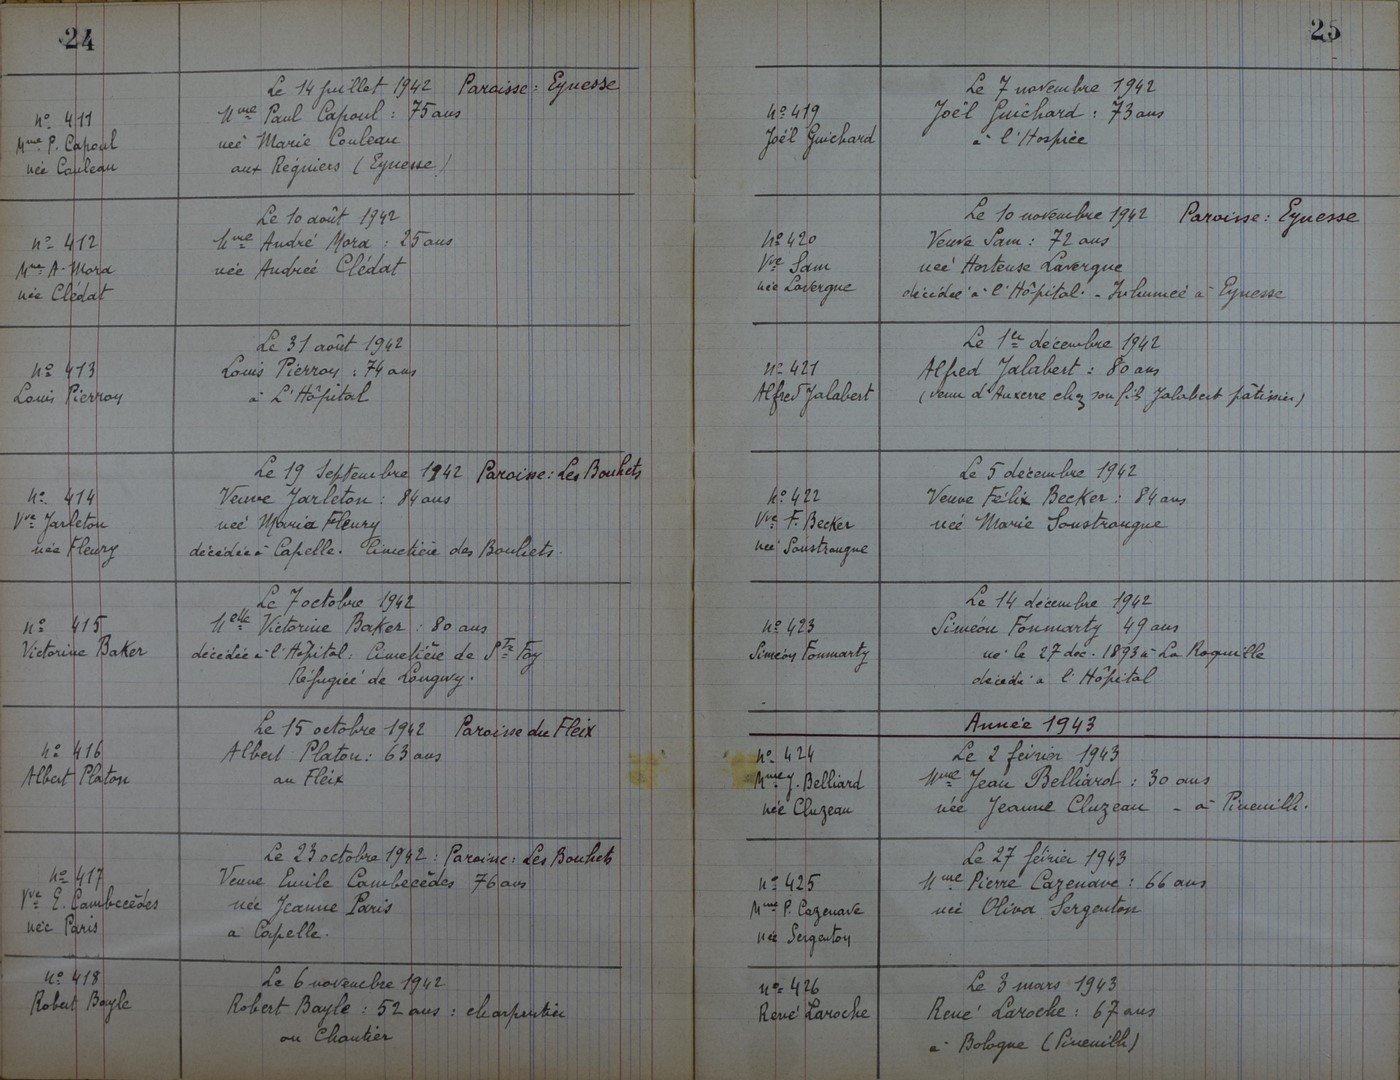 24
Le 14 juillet 1942 Paroisse : Eynesse
n° 411
Mme Paul Capoul : 75 ans
Mme P. Capoul
née Marie Couleau
née Couleau
aux Régniers (Eynesse)
Le 10 août 1942
n° 412
Mme André Mora : 25 ans
Mme A. Mora
née Andrée Clédat
née Clédat
Le 31 août 1942
n° 413
Louis Pierroy : 74 ans
Louis Pierroy
à L'Hôpital
Le 19 Septembre 1942 Paroisse : Les Bouhets
n° 414
Veuve Jarleton : 84 ans
Vve Jarleton
née Maria Fleury
née Fleury
décédée à Capelle. Cimetière des Bouhets.
Le 7 octobre 1942
n° 415
Melle Victorine Baker : 80 ans
Victorine Baker
décédée à l'Hôpital : Cimetière de Ste Foy
Réfugiée de Longwy.
Le 15 octobre 1942 Paroisse du Fleix
n° 416
Albert Platon : 63 ans
Albert Platon
au Fleix
Le 23 octobre 1942 : Paroisse : Les Bouhets
n° 417
Veuve Emile Cambecèdes 76 ans
Vve E. Cambecèdes
née Jeanne Paris
née Paris
à Capelle.
n° 418
Le 6 novembre 1942
Robert Bayle
Robert Bayle : 52 ans : charpentier
au Chantier
25
Le 7 novembre 1942
n° 419
Joël Guichard : 73 ans
Joël Guichard
à l'Hospice
Le 10 novembre 1942 Paroisse : Eynesse
n° 420
Veuve Sam : 72 ans
Vve Sam
née Hortense Lavergne
née Lavergne
décédée à l'Hôpital. - Inhumée à Eynesse
Le 1er décembre 1942
n° 421
Alfred Jalabert : 80 ans
Alfred Jalabert
(venu d'Auxerre chez son fils Jalabert pâtissier)
Le 5 décembre 1942
n° 422
Veuve Félix Becker : 84 ans
Vve F. Becker
née Marie Soustrougne
née Soustrougne
Le 14 décembre 1942
n° 423
Siméon Fonmarty 49 ans
Siméon Fonmarty
né le 27 déc. 1893 à La Roquille
décédé à l'Hôpital
Année 1943
n° 424
Le 2 février 1943
Mme J. Belliard
Mme Jean Belliard : 30 ans
née Cluzeau
née Jeanne Cluzeau - à Pineuilh.
Le 27 février 1943
n° 425
Mme Pierre Cazenave : 66 ans
Mme P. Cazenave
née Oliva Sergenton
née Sergenton
n° 426
Le 3 mars 1943
René Laroche
René Laroche : 67 ans
à Bologne (Pineuilh)